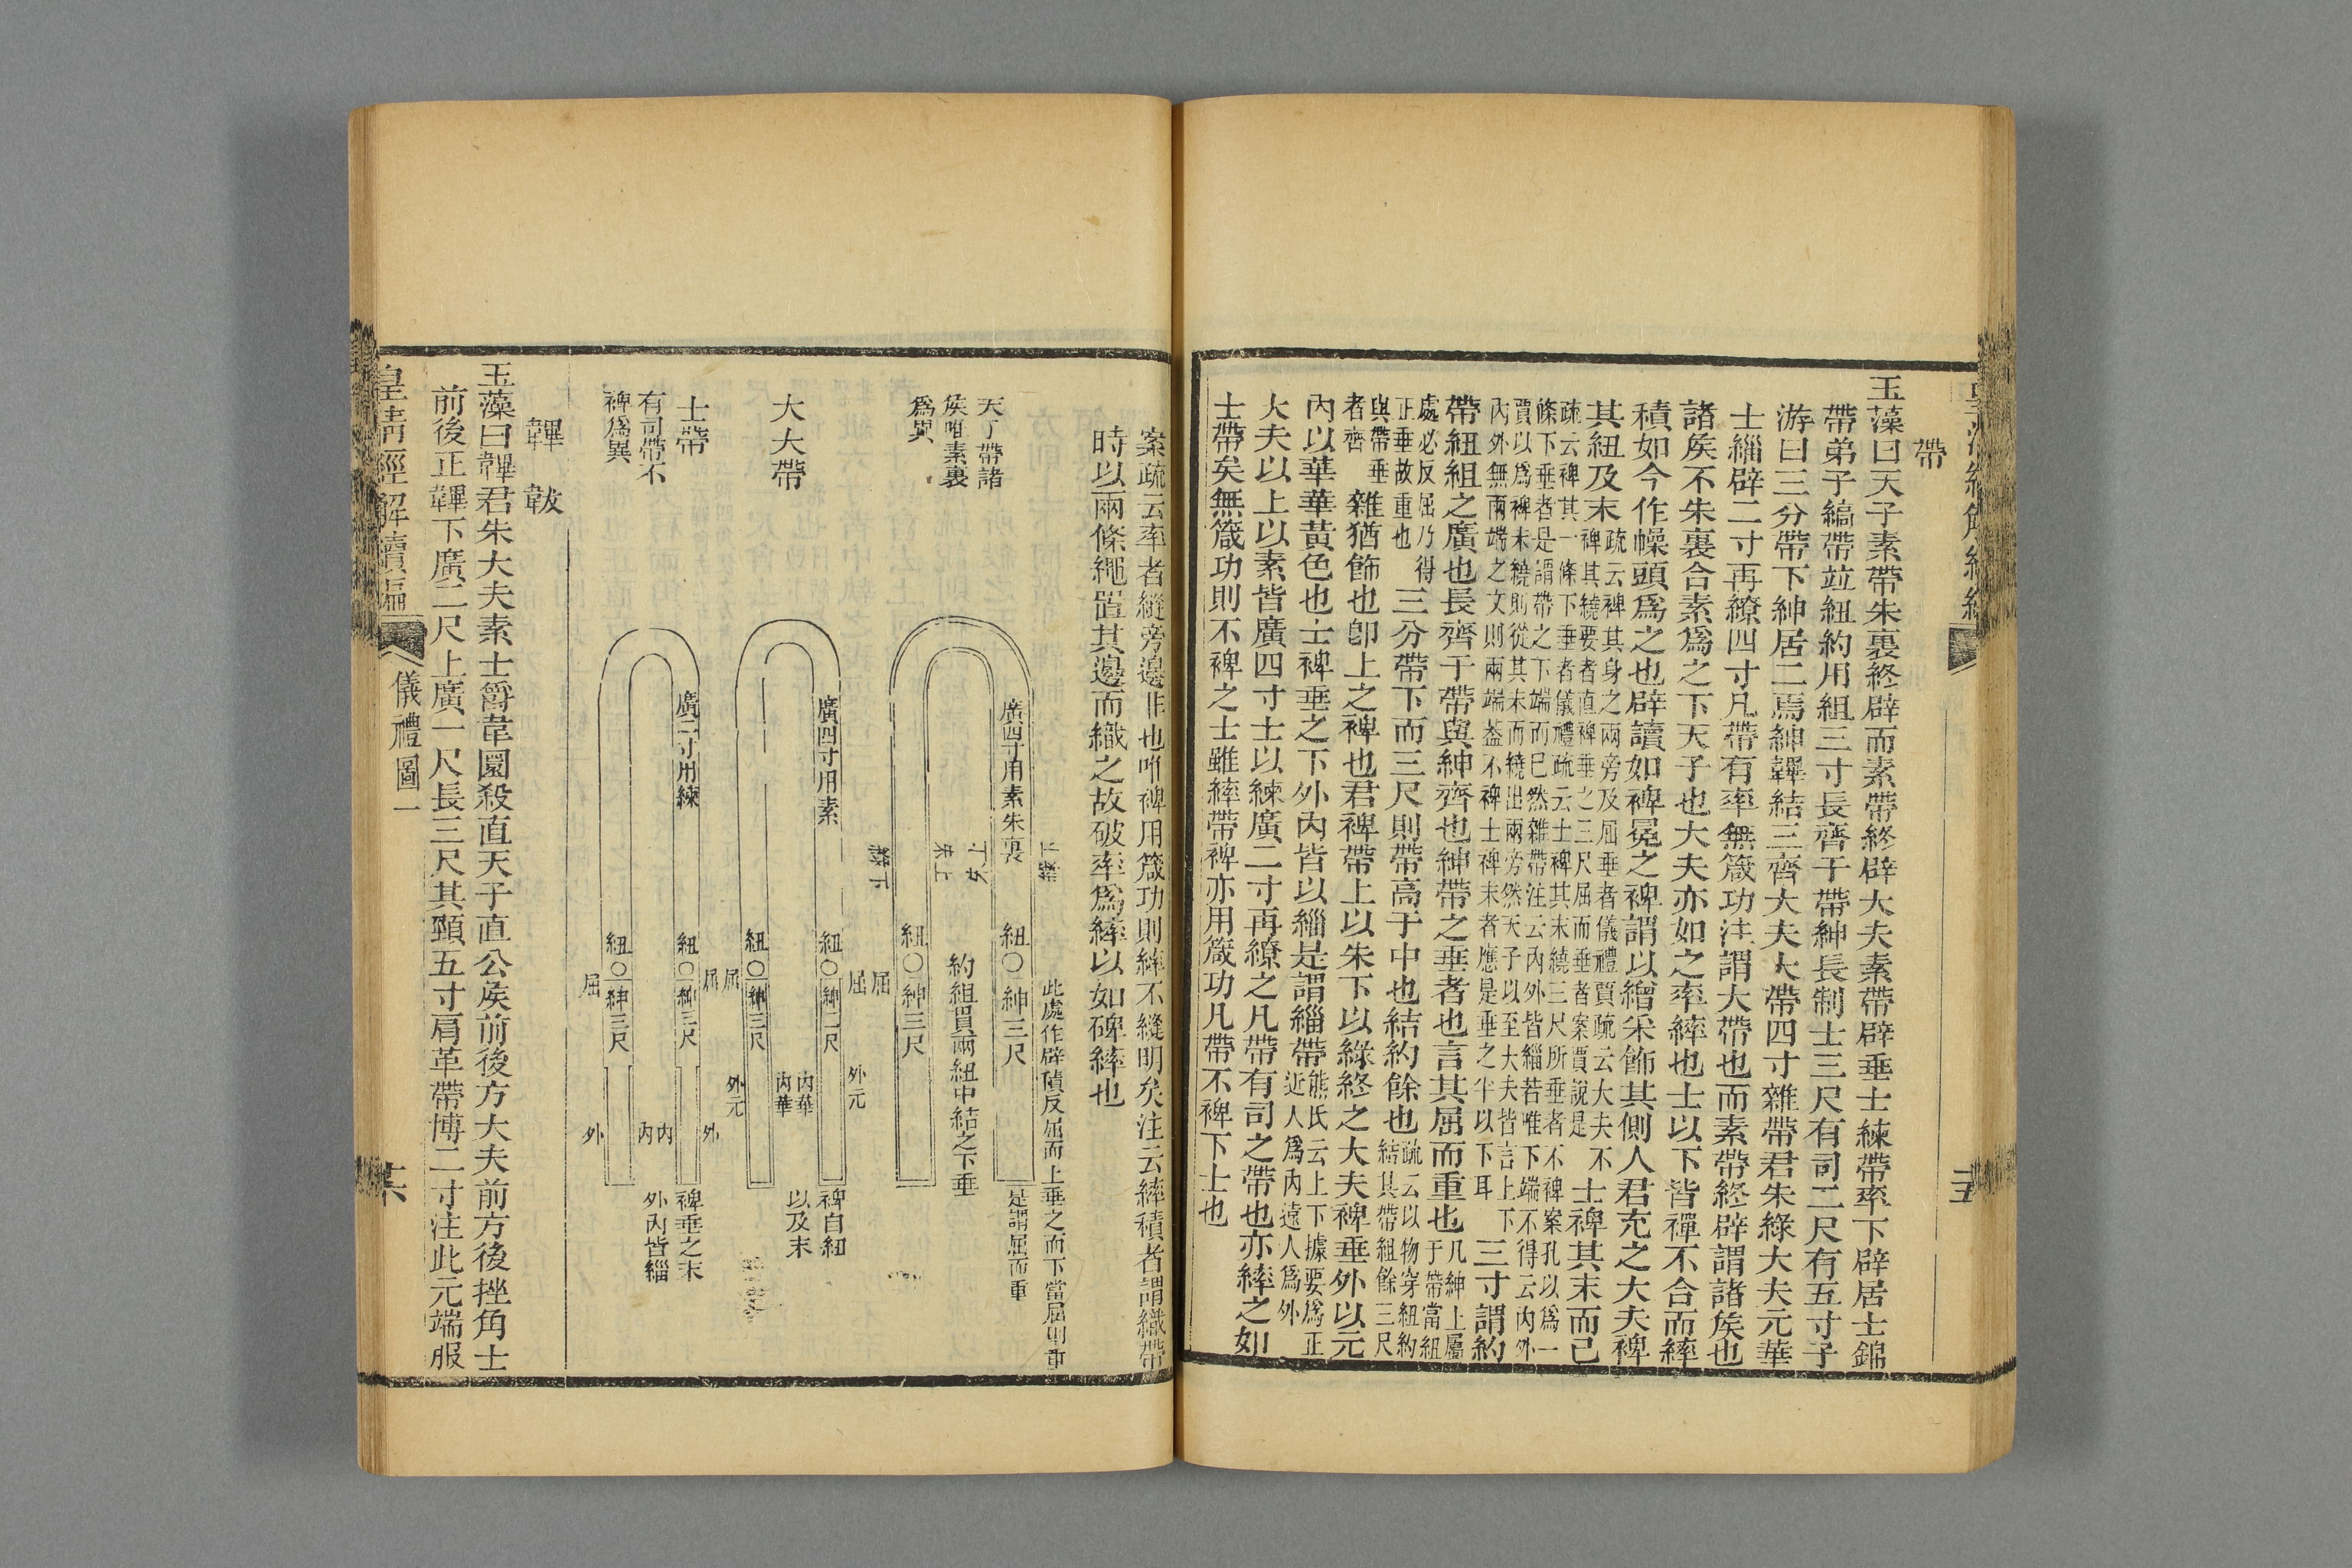 帶
玉藻曰天子素帶朱裏終辟而素帶終辟大夫素帶辟垂士練帶率下辟居士錦
帶弟子縞帶竝紐約用組三寸長齊于帶紳長制士三尺有司二尺有五寸子
游曰三分帶下紳居二焉紳韠結三齊大夫大帶四寸雜帶君朱綠大夫元華
士緇辟二寸再繚四寸凡帶有率無箴功注謂大帶也而素帶終辟謂諸矦也
諸矦不朱裏合素爲之下天子也大夫亦如之率繂也士以下皆禪不合而繂
積如今作幧頭爲之也辟讀如裨冕之裨謂以繒采飾其側人君充之大夫裨
其紐及末疏云裨其身之兩旁及屈垂者儀禮賈疏云大夫不
裨其繞要者直裨垂之三尺屈而垂者案賈說是士裨其末而已
疏云裨其一條下垂者儀禮疏云士裨其末繞三尺所垂者不裨案孔以爲一
條下垂者是謂帶之下端而已然雜帶注云內外皆緇若唯下端不得云內外
賈以爲裨末繞則從其末而繞出兩旁然天子以至大夫皆言上下
內外無兩端之文則兩端葢不裨士裨末者應是垂之半以下耳三寸謂約
帶紐組之廣也長齊于帶與紳齊也紳帶之垂者也言其屈而重也凡紳上屬
于帶當紐
處必反屈乃得
正垂故重也三分帶下而三尺則帶高于中也結約餘也疏云以物穿紐約
結其帶組餘三尺
與帶垂
者齊雜猶飾也卽上之裨也君裨帶上以朱下以綠終之大夫裨垂外以元
內以華華黃色也士裨垂之下外內皆以緇是謂緇帶熊氏云上下據要爲正
近人爲內遠人爲外
大夫以上以素皆廣四寸士以練廣二寸再繚之凡帶有司之帶也亦繂之如
士帶矣無箴功則不裨之士雖繂帶裨亦用箴功凡帶不裨下士也
案疏云率者縫旁邊非也唯裨用箴功則繂不縫明矣注云繂積者謂織帶
時以兩條繩置其邊而織之故破率爲繂以如碑繂也
天子帶諸
矦唯素裏
爲異
廣四寸用素朱裏
紐〇紳三尺
紐〇紳三尺
約組貫兩紐中結之下垂
此處作辟積反屈而上垂之而下當屈則重
是謂屈而重
屈
大夫帶
廣四寸用素
紐〇紳三尺
紐〇紳三尺
屈
屈
外元
內華
內華
外元
裨自紐
以及末
士帶
有司帶不
裨爲異
廣二寸用練
紐〇紳三尺
紐〇紳三尺
屈
屈
外
內
內
外
裨垂之末
外內皆緇
韠 韍
玉藻曰韠君朱大夫素士爵韋圜殺直天子直公矦前後方大夫前方後挫角士
前後正韠下廣二尺上廣一尺長三尺其頸五寸肩革帶博二寸注此元端服
皇淸經解續編
儀禮圖一